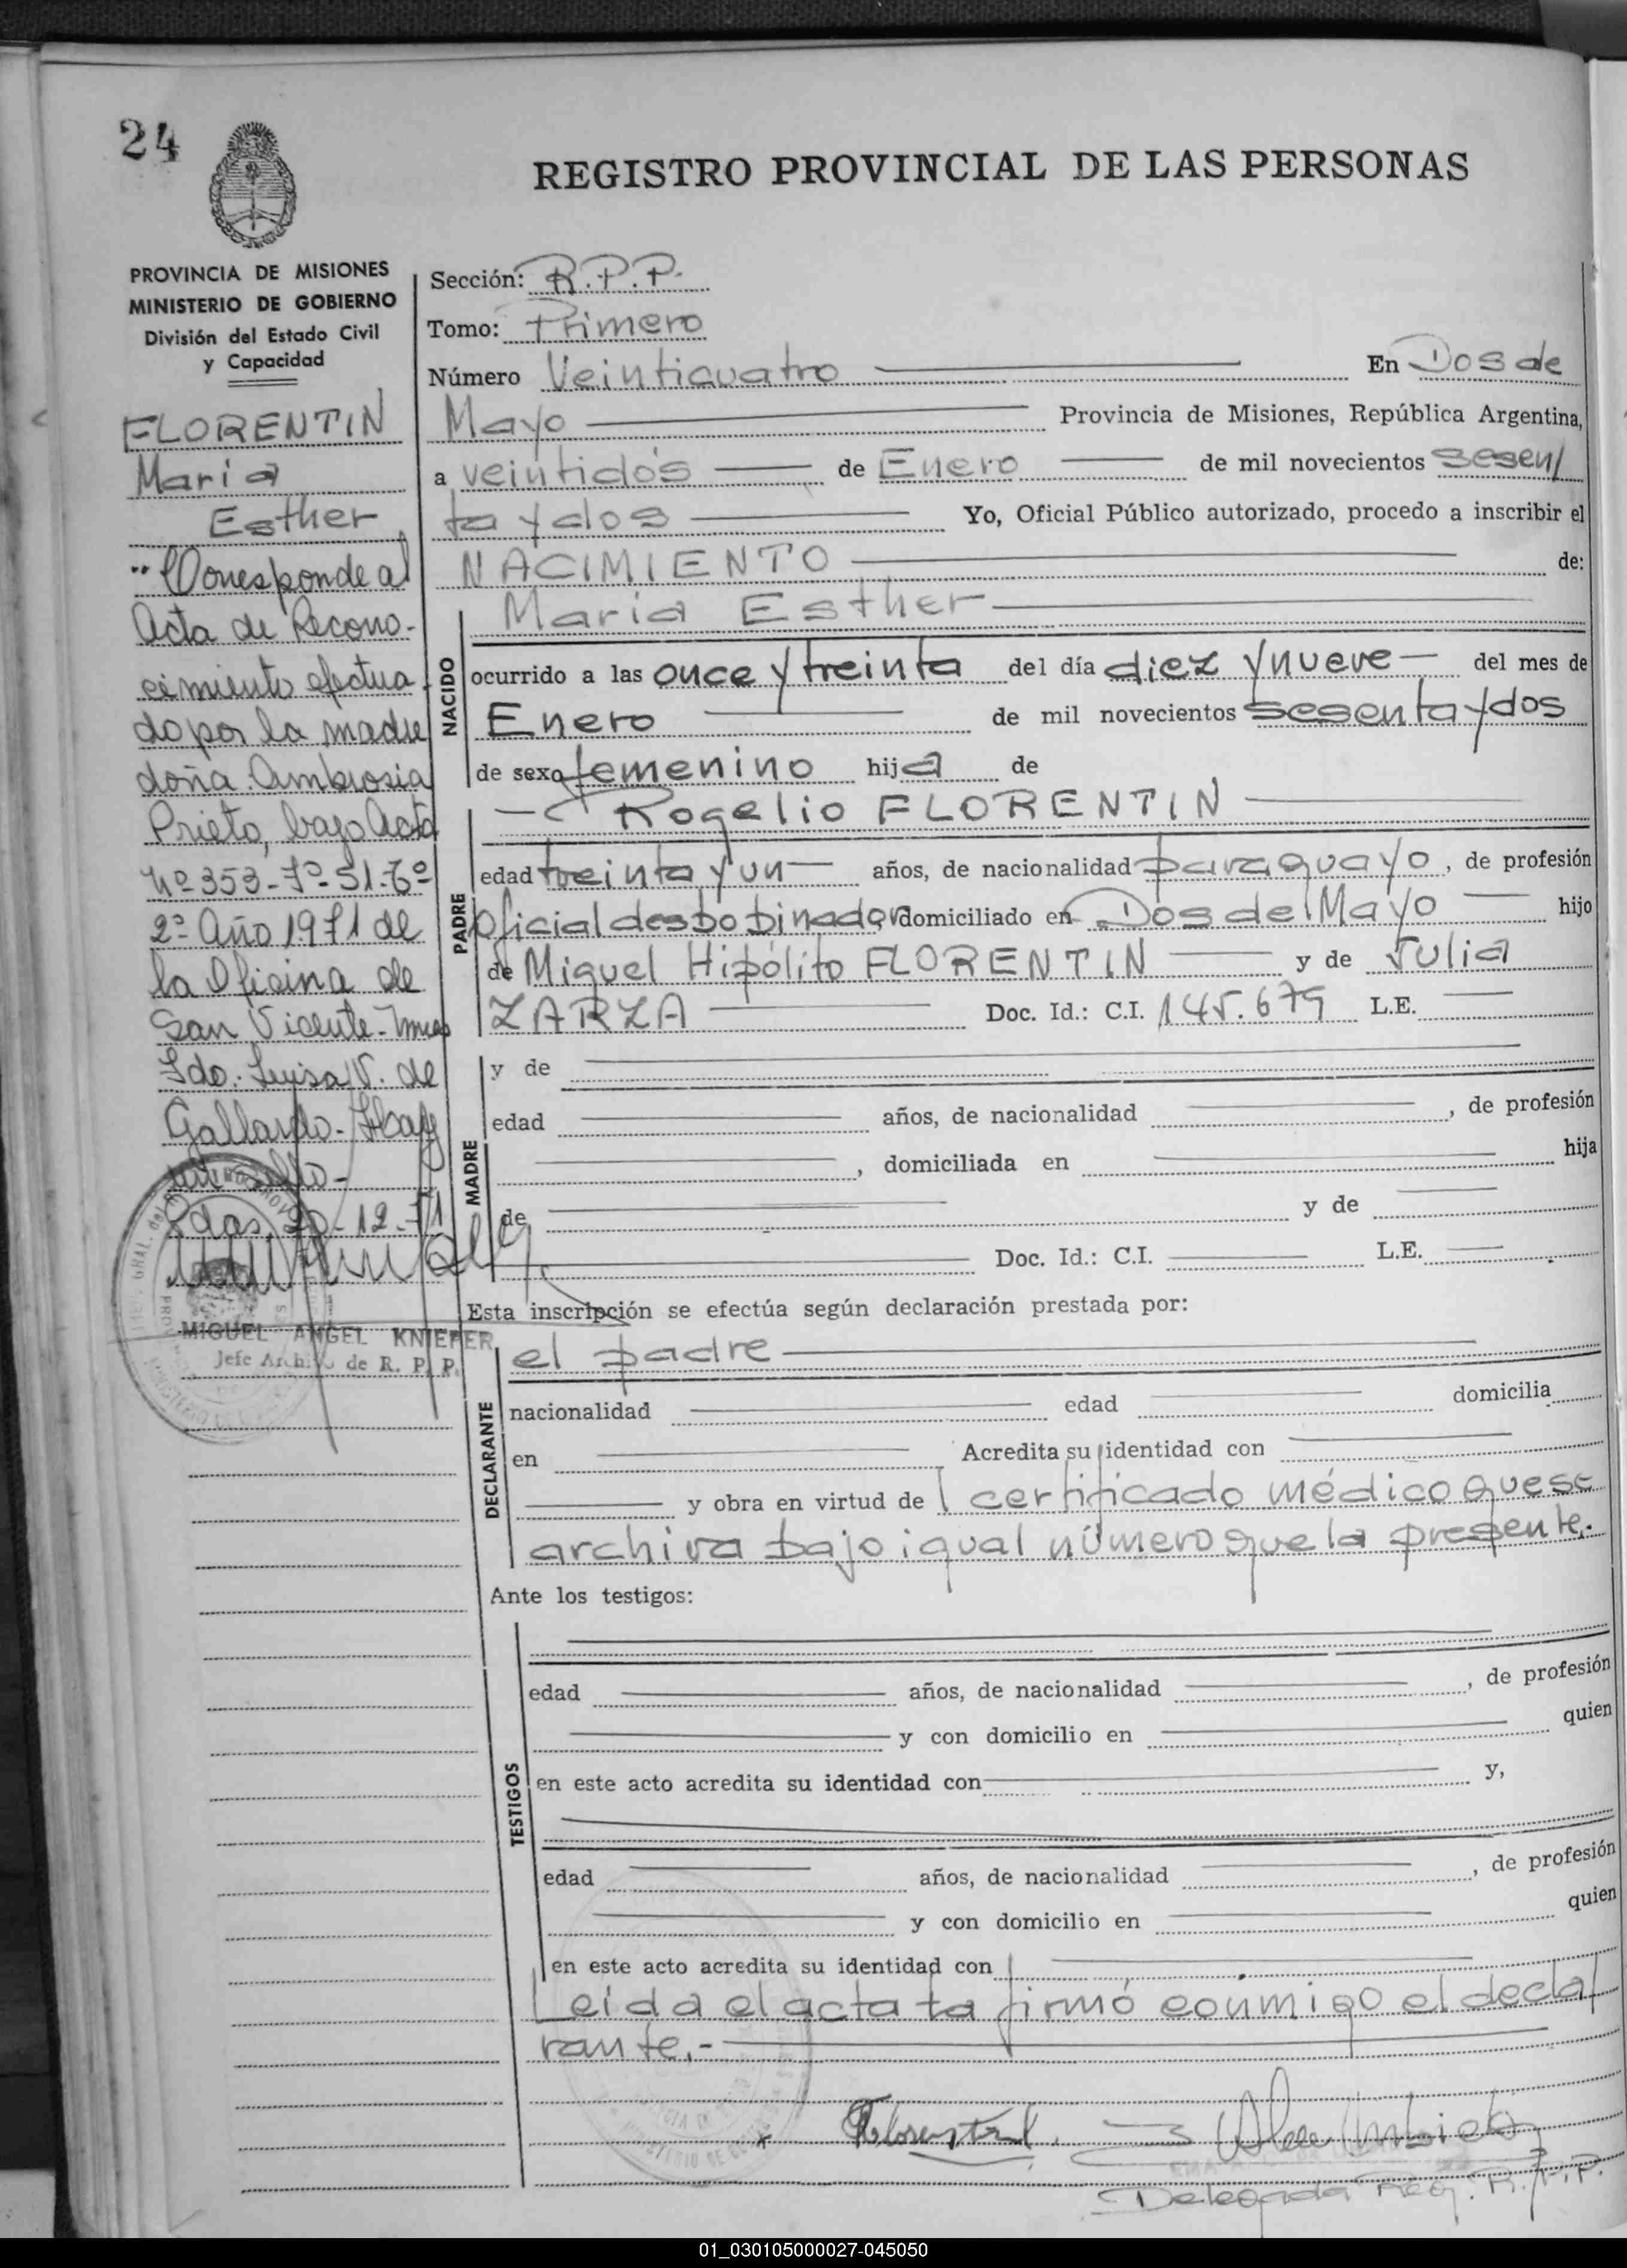 24
REGISTRO PROVINCIAL DE LAS PERSONAS
PROVINCIA DE MISIONES
MINISTERIO DE GOBIERNO
División del Estado Civil
y Capacidad
FLORENTIN
Maria
Esther
"Corresponde al
Acta de Recono-
cimiento efectua
do por la madre
doña Ambrosia
Prieto, bajo Acta
Nº 353-Fº-51-Tº
2º Año 1971 de
la Oficina de
San Vicente-Mnes
Fdo. Luysa V. de
Gallardo- Hay
un sello-
Pdas, 20-12-71
MIGUEL ANGEL KNIEFER
Jefe Archivo de R. P. P.
Sección: R.P.P.
Tomo: Primero
Número Veinticuatro En Dos de
Mayo Provincia de Misiones, República Argentina,
a veintidós de Enero de mil novecientos sesen/
ta y dos Yo, Oficial Público autorizado, procedo a inscribir el
NACIMIENTO de:
NACIDO
Maria Esther
ocurrido a las once y treinta del día diez y nueve del mes de
Enero de mil novecientos sesenta y dos
de sexo femenino hija de
PADRE
Rogelio FLORENTIN
edad treinta y un años, de nacionalidad paraguayo, de profesión
oficial desbobinador domiciliado en Dos de Mayo hijo
de Miguel Hipólito FLORENTIN y de Julia
ZARZA Doc. Id.: C.I. 145.679 L.E.
MADRE
y de
edad años, de nacionalidad , de profesión
, domiciliada en hija
de y de
Doc. Id.: C.I. L.E.
Esta inscripción se efectúa según declaración prestada por:
DECLARANTE
el padre
nacionalidad edad domicilia
en Acredita su identidad con
y obra en virtud de l certificado médico que se
archiva bajo igual número que la presente.
Ante los testigos:
TESTIGOS
edad años, de nacionalidad , de profesión
y con domicilio en quien
en este acto acredita su identidad con y,
edad años, de nacionalidad , de profesión
y con domicilio en quien
en este acto acredita su identidad con
Leida el acta ta firmó conmigo el decla/
rante.-
Delegada Reg. R.P.P.
01_030105000027-045050